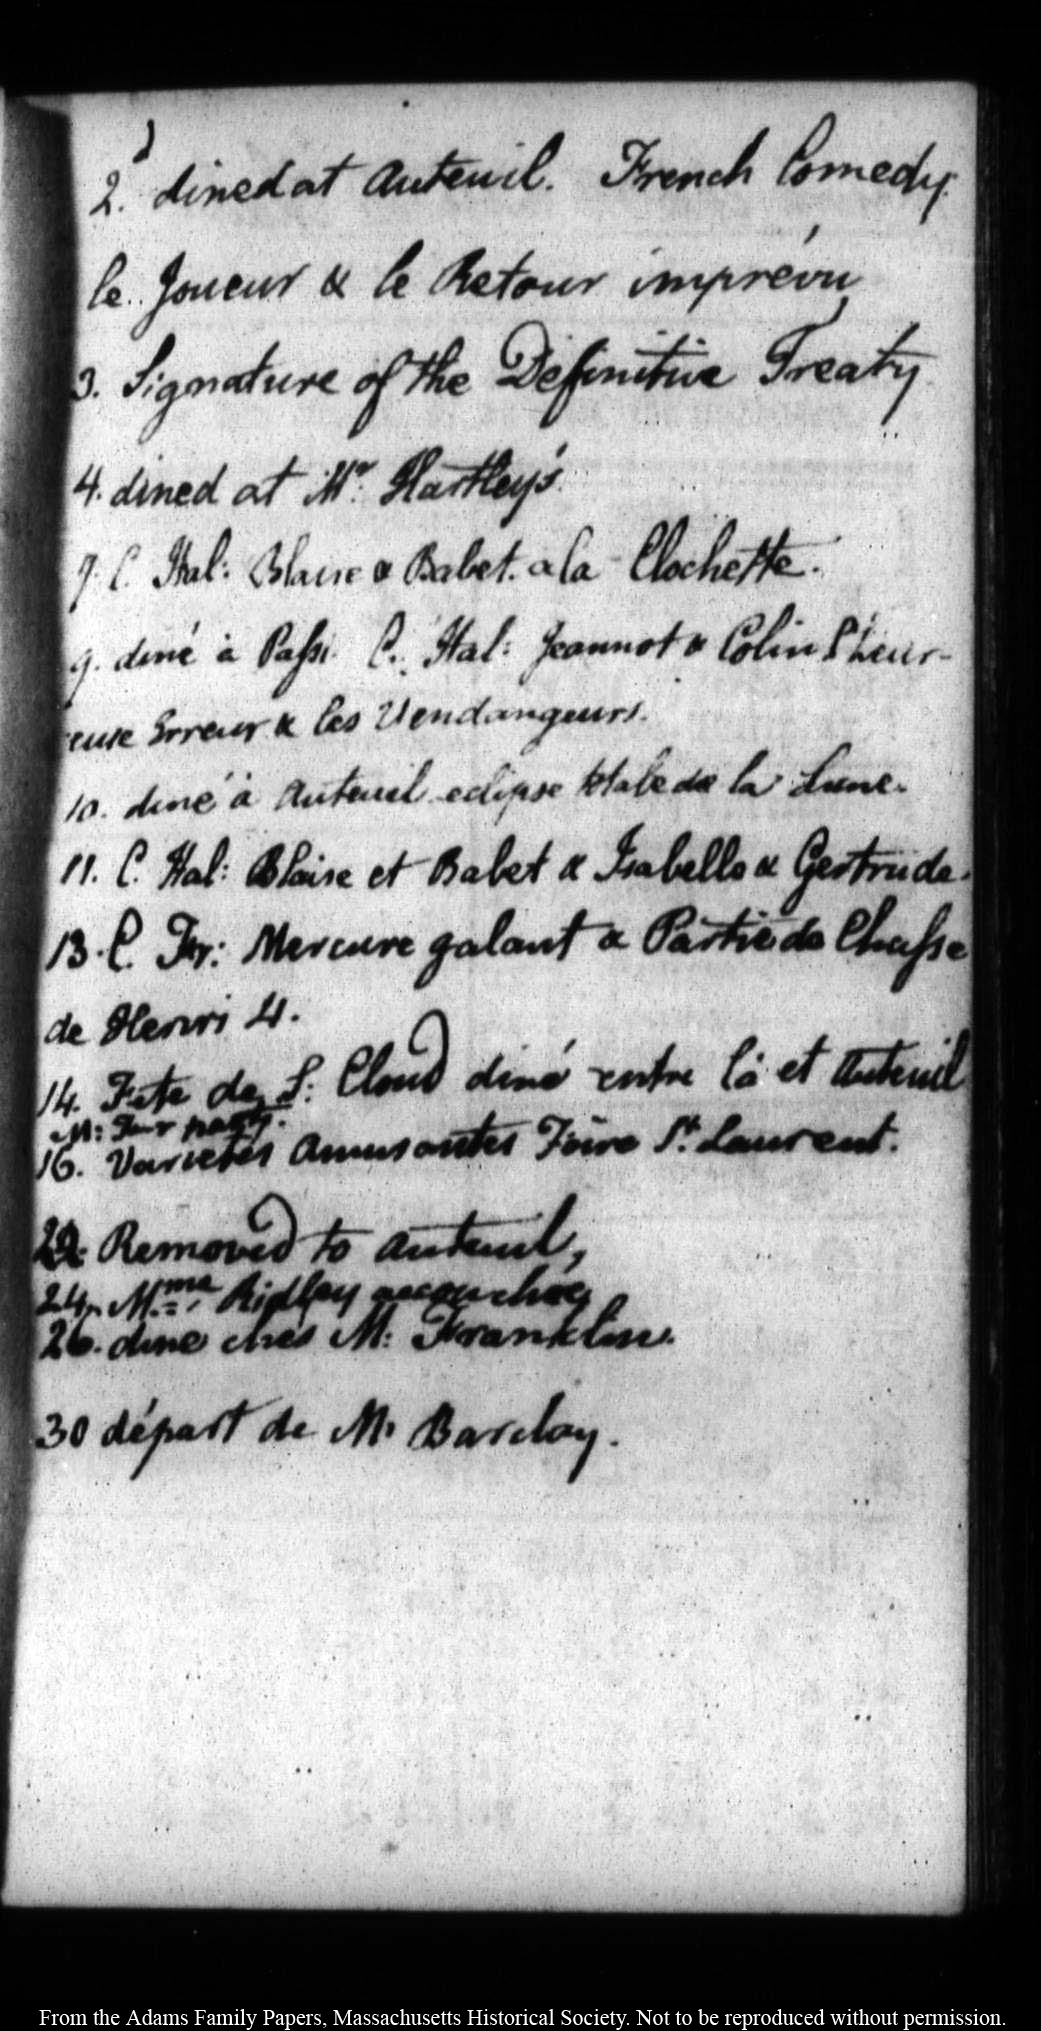 2. dined at Auteuil. French Comedy
le Joueur & le Retour imprévu
3. Signature of the Definitive Treaty
4. dined at Mr. Hartley's
7. C. Ital: Blaise & Babet. a la Clochette.
9. diné à Passi. C. Ital: Jeannot & Colin l'heur-
euse Erreur & les Vendangeurs.
10. diné à Auteuil eclipse totale de la Lune.
11. C. Ital: Blaise et Babet & Isabelle & Gertrude.
13. C. Fr: Mercure galant & Partie de Chasse
de Henri 4.
14. Fete de S: Cloud diné entre là et Auteuil
M:
16. Varietés Amusantes Foire St. Laurent.
22. Removed to Auteuil,
24. Mme. Ridley accouchée
26. diné chés M: Franklin.
30 départ de M. Barclay.
From the Adams Family Papers, Massachusetts Historical Society. Not to be reproduced without permission.